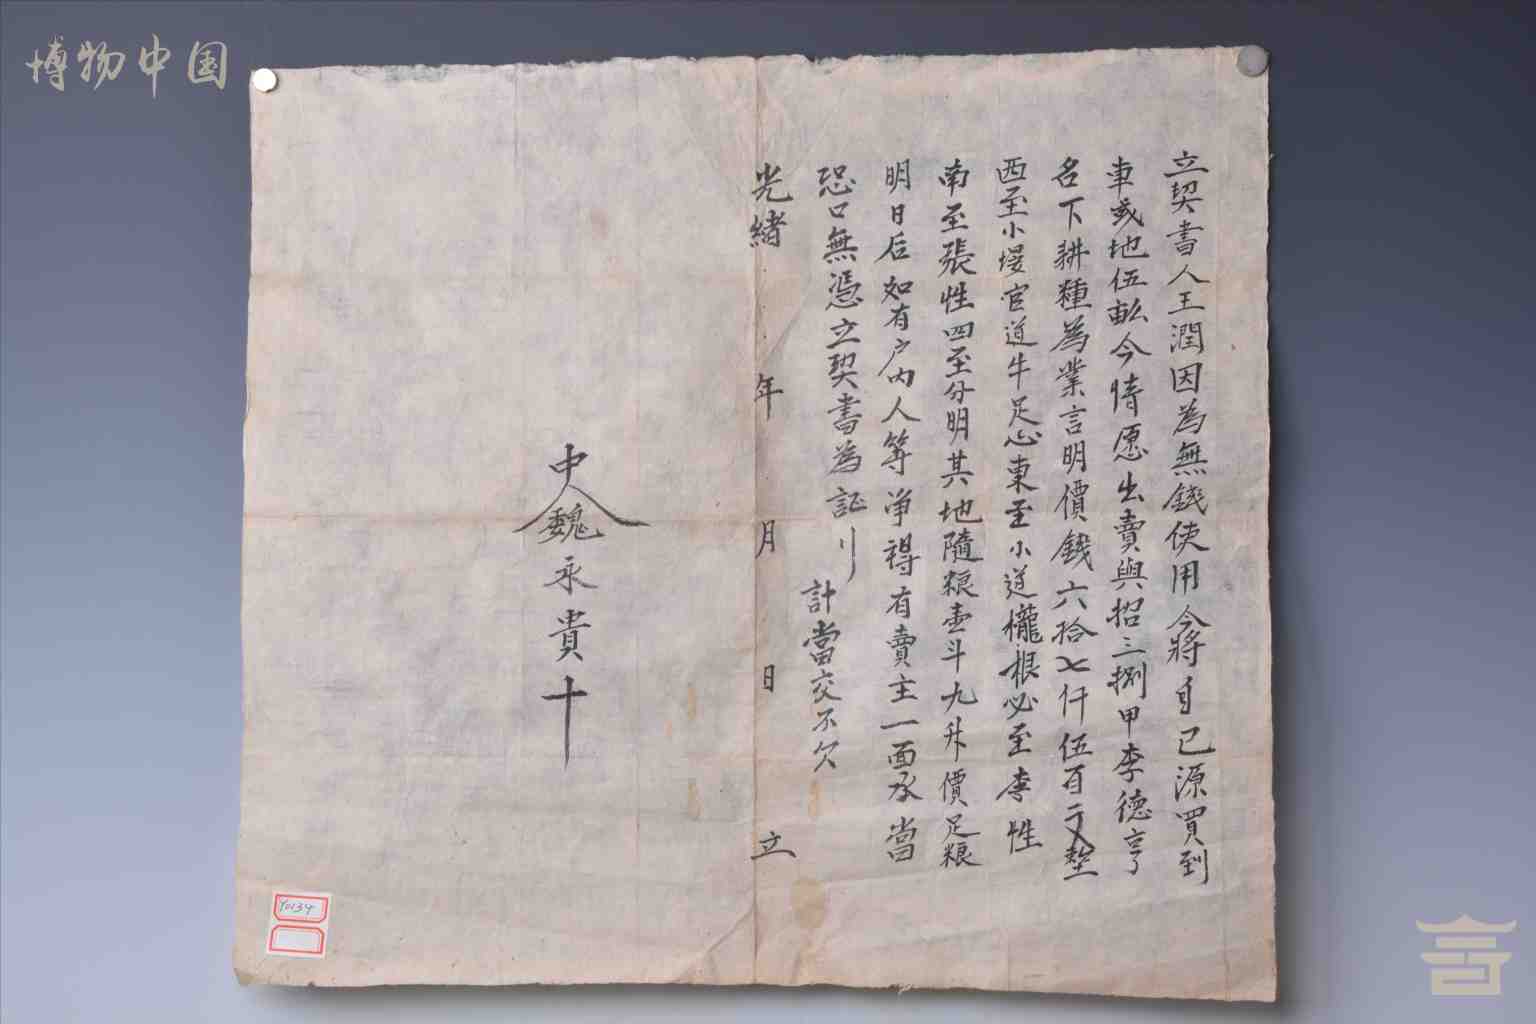 博物中国
立契書人王潤因為無錢使用今將自己源買到
車戓地伍畝今情愿出賣與招三捌甲李德亨
名下耕種為業言明價錢六拾七仟伍百文整
西至小墁官道牛足心東至小道櫳根必至李性
南至張性四至分明其地隨粮壹斗九升價足粮
明日后如有户內人等净得有賣主一面承當
恐口無憑立契書為証
計當交不欠
光緒 年 月 日 立
中人魏永貴十
Y0134